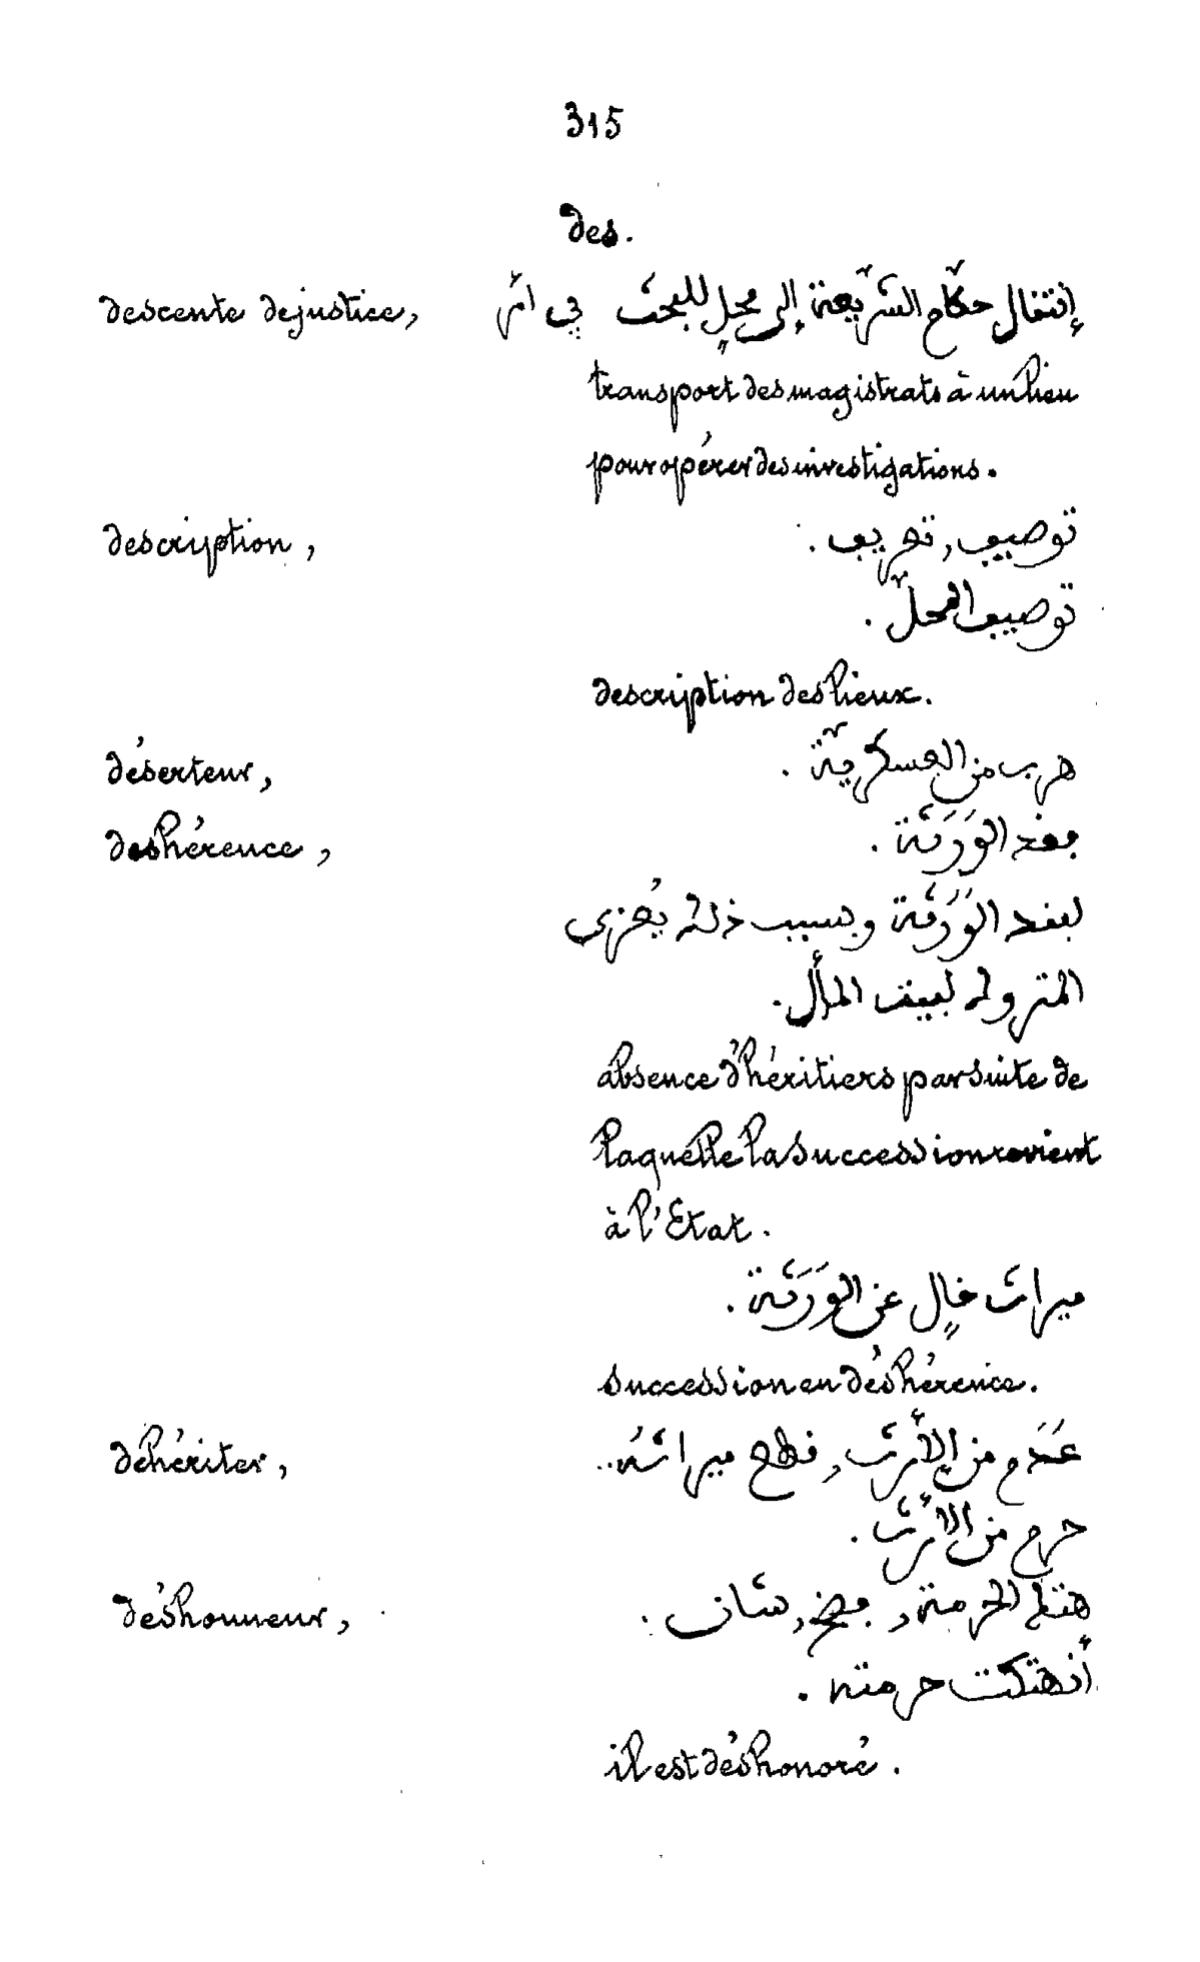 315
des.
descente de justice, إنتقال حكّام الشّريعة إلى محلٍّ للبحث في امْر
transport des magistrats à un lieu
pour opérer des investigations.
description, توصيف, تعريف.
توصيف المحلّ.
description des lieux.
déserteur, هرب من العسكريّة.
deshérence, فقد الوَرَثَة.
لفقد الوَرَثَة وبسبب ذلك يُعزى
المتروك لبيت المأل.
absence d'héritiers par suite de
laquelle la succession revient
à l'Etat.
ميراث خالٍ عن الوَرَثَة.
succession en déshérence.
déhériter, عَدَم من الأرث, قطع ميراثهُ.
حرم من الأرث.
déshonneur, هتك الحرمة, فضح, شان.
أنهتكت حرمته.
il est déshonoré.